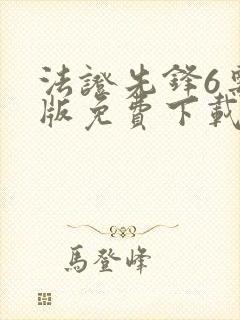 法證先鋒6
版免費下載
馬登峰